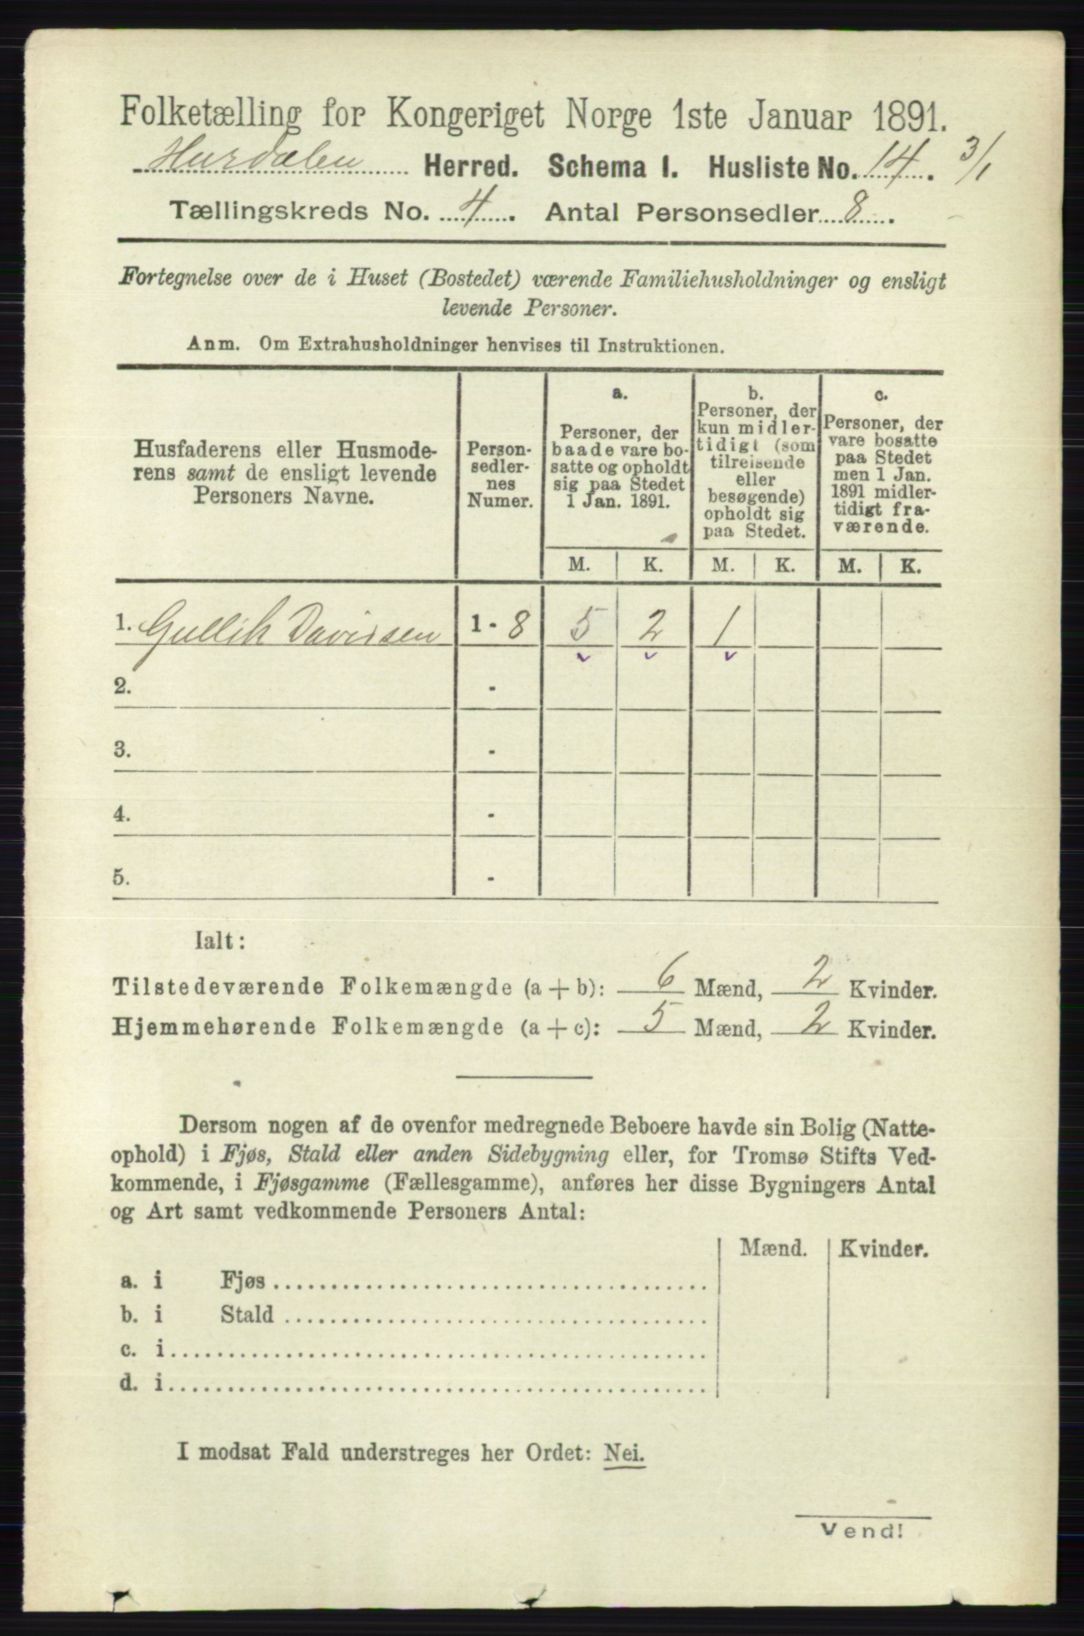 Folketælling for Kongeriget Norge 1ste Januar 1891.
Hurdalen Herred. Schema I. Husliste No. 14. 3/1
Tællingskreds No. 4. Antal Personsedler 8.
Fortegnelse over de i Huset (Bostedet) værende Familiehusholdninger og ensligt
levende Personer.
Anm. Om Extrahusholdninger henvises til Instruktionen.
Husfaderens eller Husmode-
rens samt de ensligt levende
Personers Navne.
Person-
sedler-
nes
Numer.
a.
Personer, der
baade vare bo-
satte og opholdt
sig paa Stedet
1 Jan. 1891.
b.
Personer, der
kun midler-
tidigt (som
tilreisende
eller
besøgende)
opholdt sig
paa Stedet.
c.
Personer, der
vare bosatte
paa Stedet
men 1 Jan.
1891 midler-
tidigt fra-
værende.
M. K. M. K. M. K.
1. Gullik Davidsen 1-8 5 2 1
2. -
3. -
4. -
5. -
Ialt:
Tilstedeværende Folkemængde (a+b): 6 Mænd, 2 Kvinder.
Hjemmehørende Folkemængde (a+c): 5 Mænd, 2 Kvinder.
Dersom nogen af de ovenfor medregnede Beboere havde sin Bolig (Natte-
ophold) i Fjøs, Stald eller anden Sidebygning eller, for Tromsø Stifts Ved-
kommende, i Fjøsgamme (Fællesgamme), anføres her disse Bygningers Antal
og Art samt vedkommende Personers Antal:
Mænd. Kvinder.
a. i Fjøs
b. i Stald
c. i
d. i
I modsat Fald understreges her Ordet: Nei.
Vend!